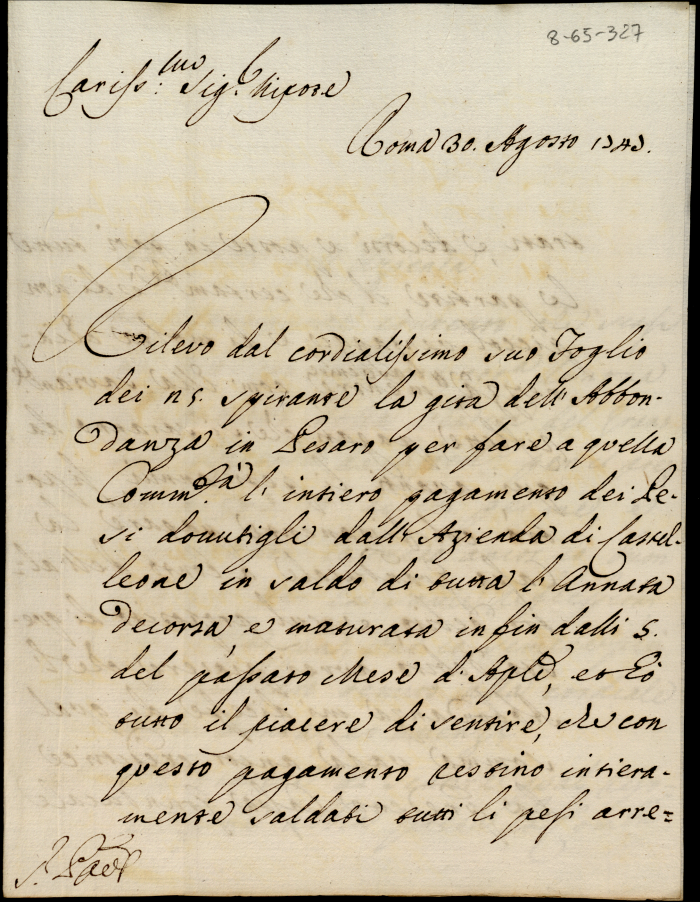 8-65-327
Cariss.mo Sig.r Nipote
Roma 30. Agosto 1743.
Rilevo dal cordialissimo suo Foglio
dei 25. spirante la gita dell'Abbon-
danza in Pesaro per fare a quella
Comm.tà l'intiero pagamento dei Pe-
si dovutigli dall'Azienda di Castel-
leone in saldo di tutta l'Annata
decorsa, e maturata infin dalli 5.
del passato Mese d'Aple, ed ò
tutto il piacere di sentire, che con
questo pagamento restino intiera-
mente saldati tutti li pesi arre=